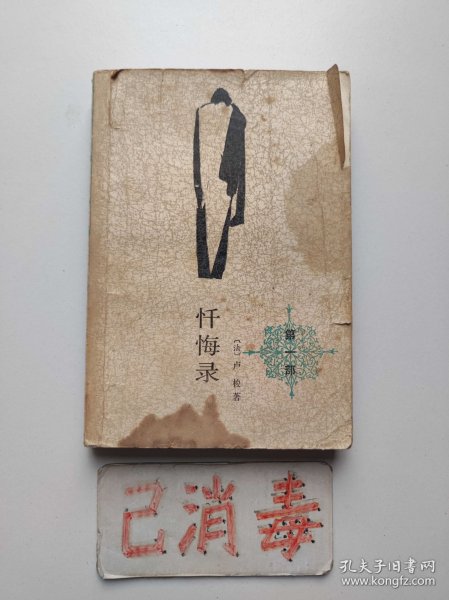 忏悔录
〔法〕卢梭著
第一部
己消毒
孔夫子旧书网
www.kongfz.com